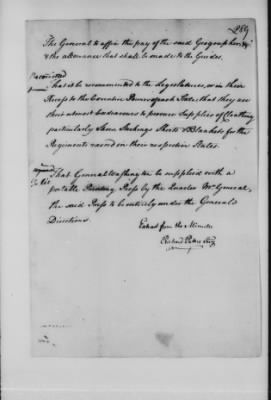 289
The General to affix the pay of the said Geographer, &
& the allowance that shall be made to the Guides.
That it be recommended to the Legislatures, or in their
Recess to the Executive Powers of each State, that they use
their utmost Endeavours to procure Supplies of Cloathing
particularly Shoes Stockings Shirts & Blankets for the
Regiments raised in their respective States.
That General Washington be supplied with a
portable Printing Press by the Quarter Mr General,
the said Press to be entirely under the General's
Directions.
Extract from the Minutes
Richard Peters Secy